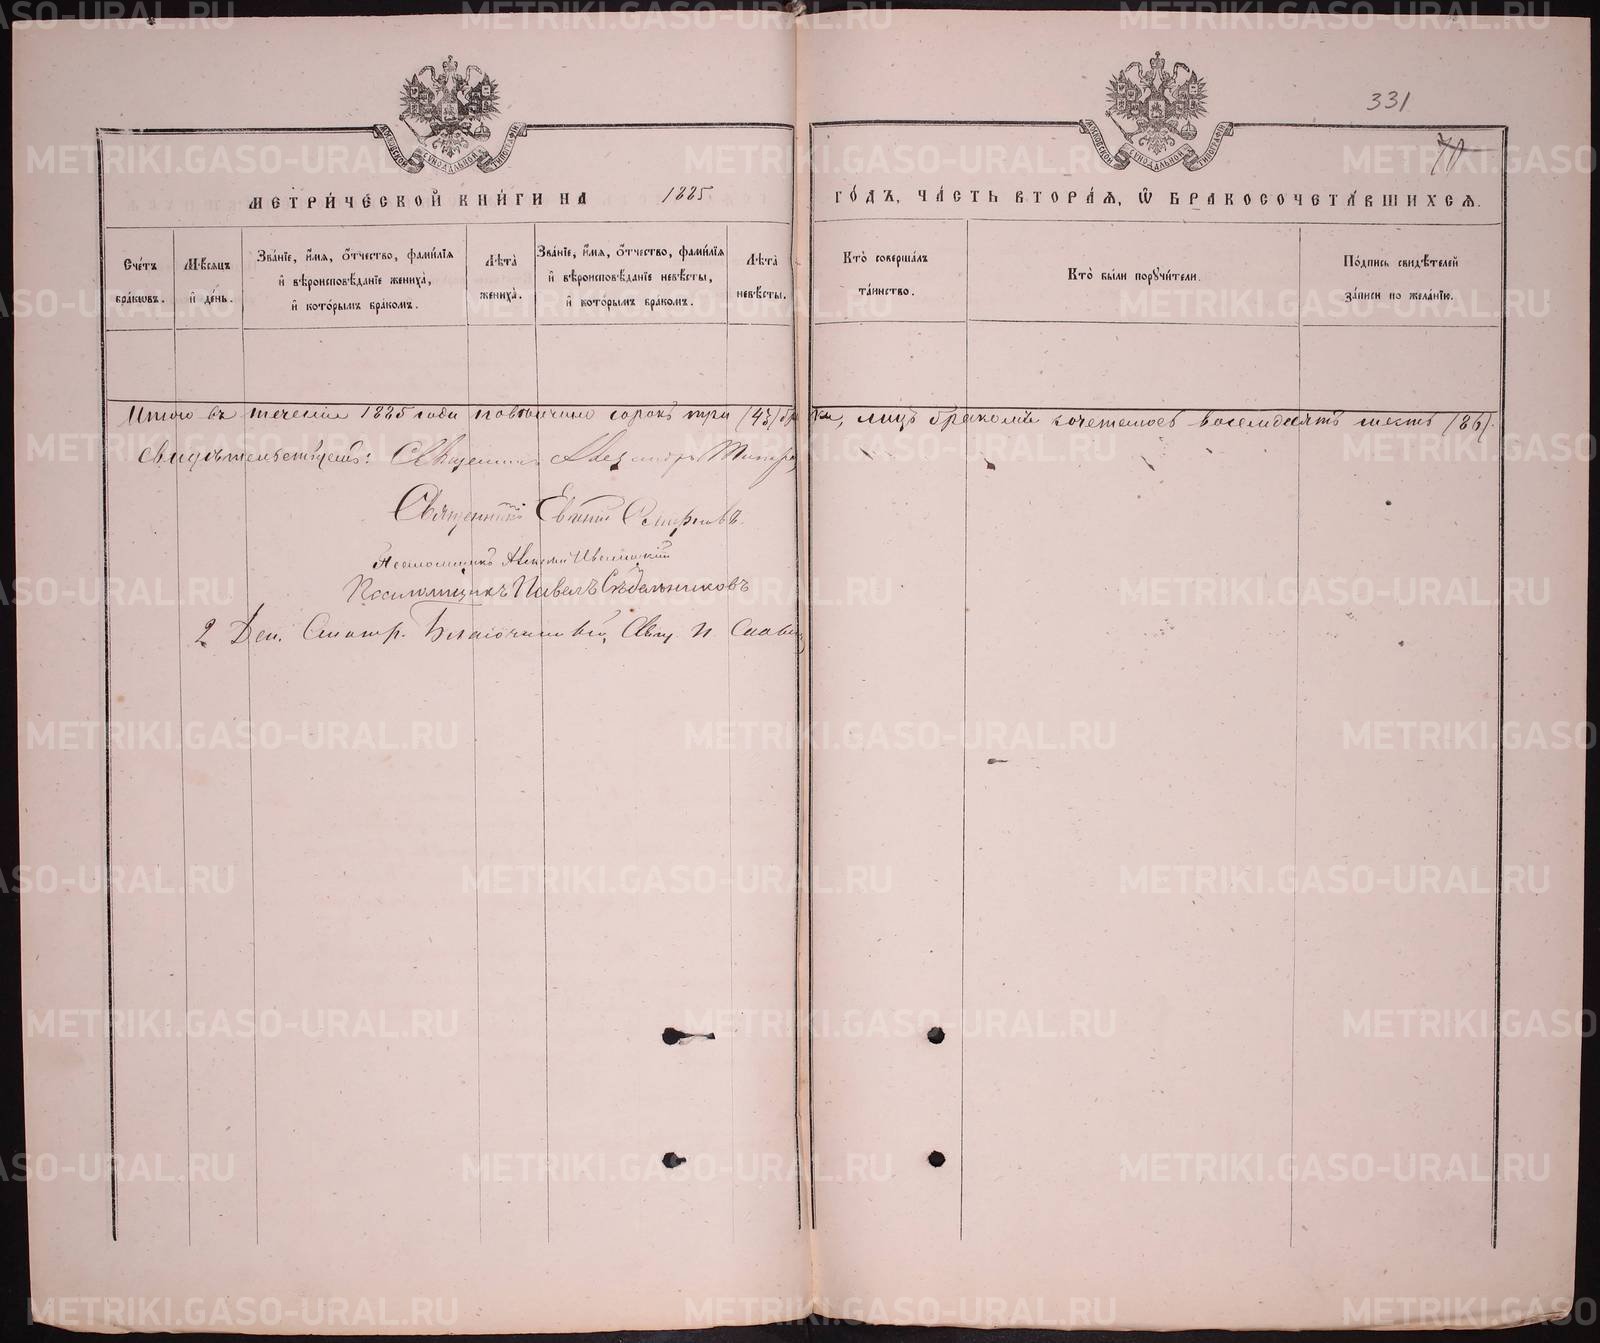 331
70
МЕТРИЧЕСКОЙ КНИГИ НА 1885 ГОДЪ, ЧАСТЬ ВТОРАЯ, Ѿ БРАКОСОЧЕТАВШИХСЯ.
Счетъ браковъ.
Мѣсяцъ и день.
Званіе, имя, отчество, фамилія и вѣроисповѣданіе жениха, и которымъ бракомъ.
Лѣта жениха.
Званіе, имя, отчество, фамилія и вѣроисповѣданіе невѣсты, и которымъ бракомъ.
Лѣта невѣсты.
Кто совершалъ таинство.
Кто были поручители.
Подпись свидѣтелей записи по желанію.
Итого въ теченіи 1885 года повѣнчано сорокъ три (43) брака, лицъ бракомъ сочеталось восемдесятъ шесть (86).
свидѣтельствуемъ: Священникъ Александръ
Священникъ Евгеній Смирновъ.
Псаломщикъ Алексѣй
Псаломщикъ Павелъ Сѣдельниковъ
2 Дек. Смотр. Благочинный, Свящ. П.
МОСКОВСКОЙ СѴНОДАЛЬНОЙ ТИПОГРАФІИ
МОСКОВСКОЙ СѴНОДАЛЬНОЙ ТИПОГРАФІИ
METRIKI.GASO-URAL.RU